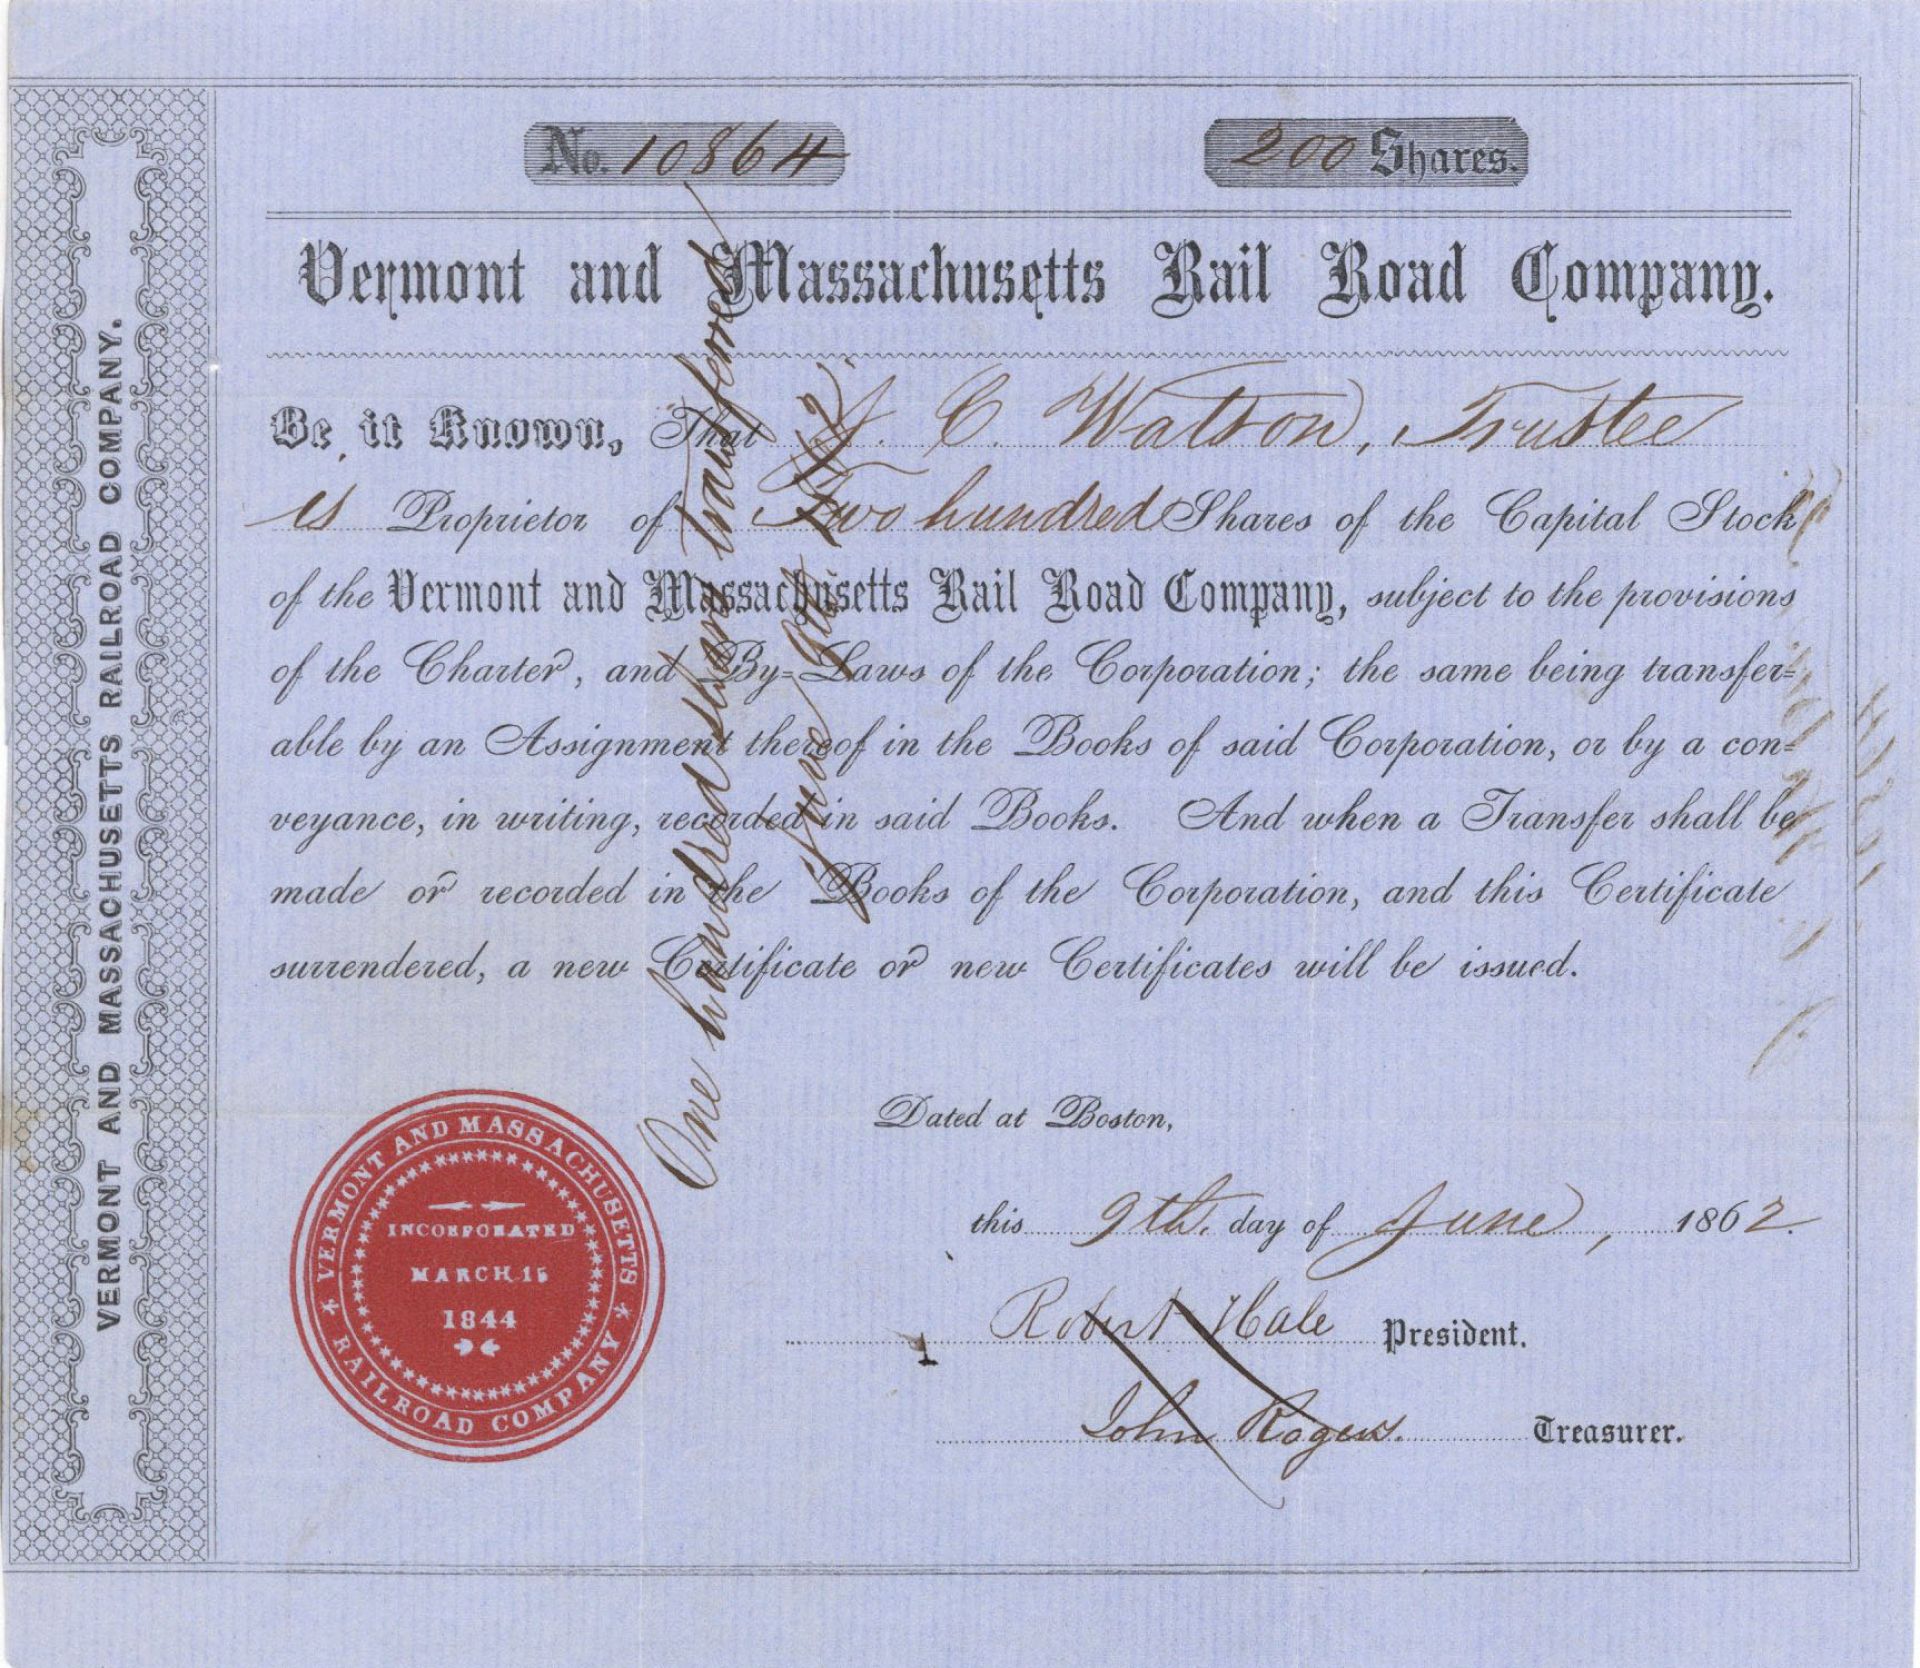 VERMONT AND MASSACHUSETTS RAILROAD COMPANY.
No. 10864
200 Shares.
Vermont and Massachusetts Rail Road Company.
Be it Known, That J. C. Watson, Trustee
is Proprietor of Two hundred Shares of the Capital Stock
of the Vermont and Massachusetts Rail Road Company, subject to the provisions
of the Charter, and By=Laws of the Corporation; the same being transfer=
able by an Assignment thereof in the Books of said Corporation, or by a con=
veyance, in writing, recorded in said Books. And when a Transfer shall be
made or recorded in the Books of the Corporation, and this Certificate
surrendered, a new Certificate or new Certificates will be issued.
One hundred shares transferred
June 9th
Dated at Boston,
this 9th. day of June, 1862.
Robert Hale President.
John Rogers. Treasurer.
VERMONT AND MASSACHUSETTS
RAILROAD COMPANY
INCORPORATED
MARCH 15
1844